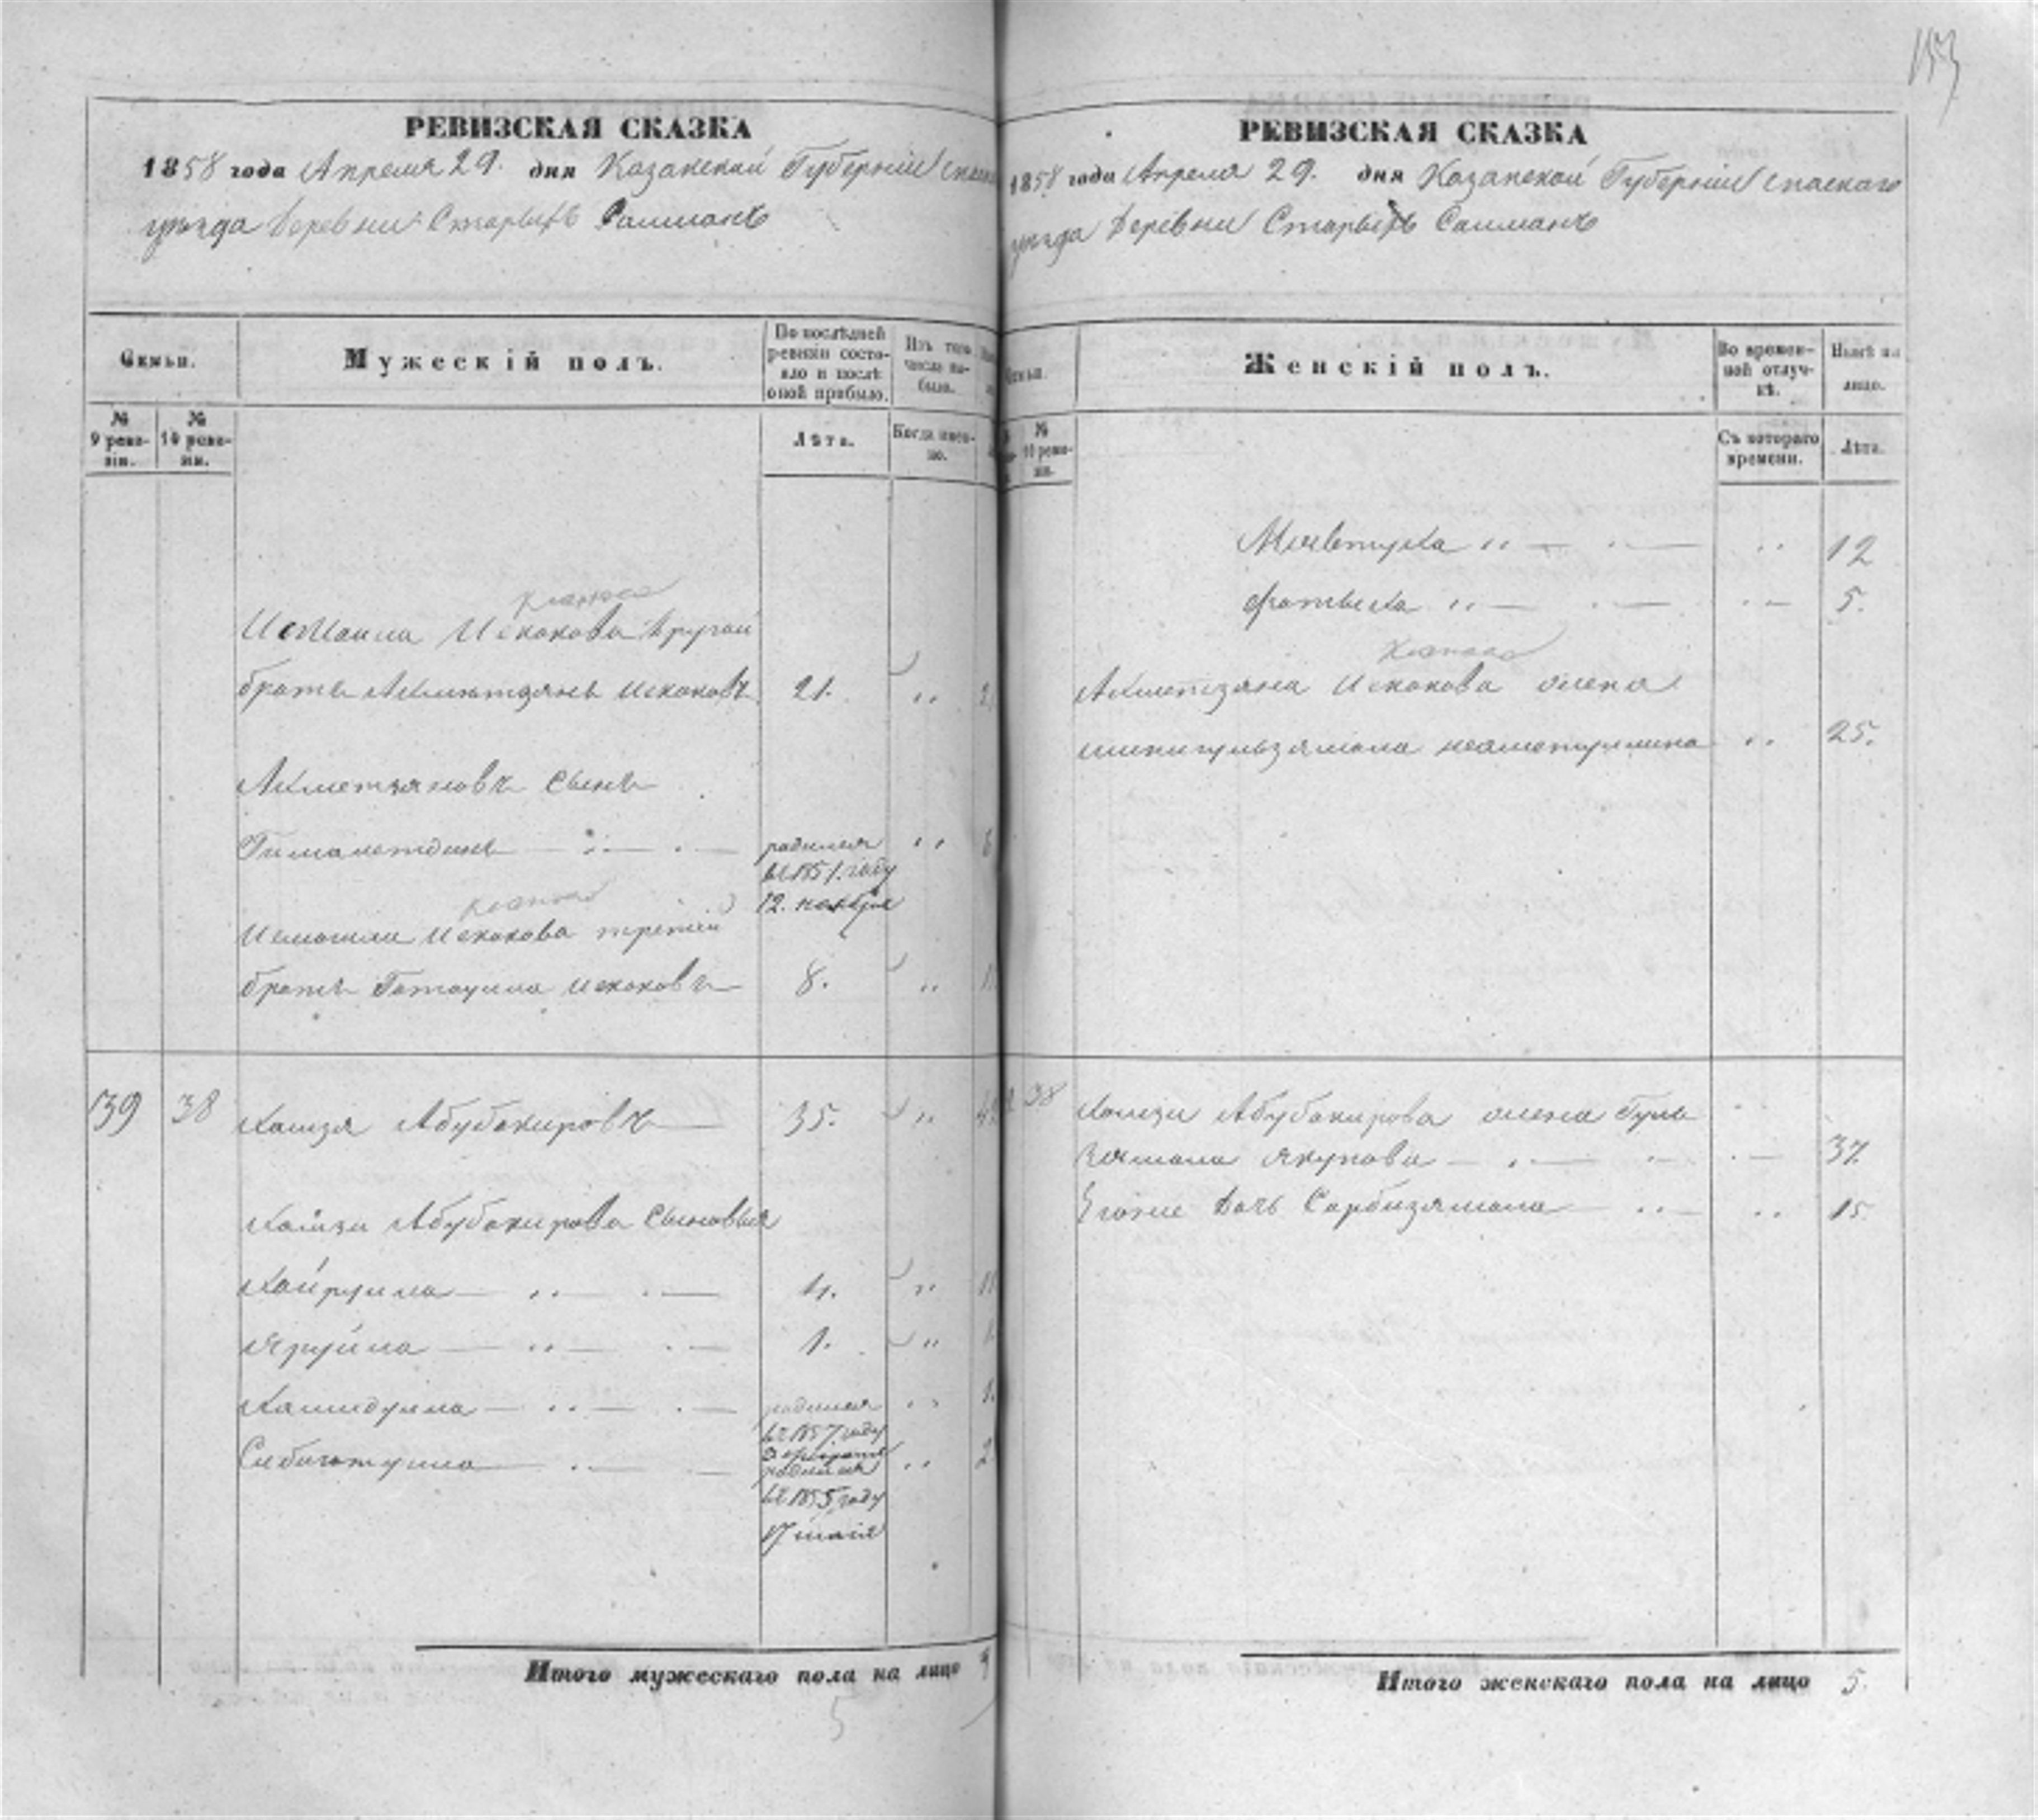 153
РЕВИЗСКАЯ СКАЗКА
1858 года Апреля 29. дня Казанской Губернiи Спаска
уезда деревни Старыхъ Салманъ
Семьи.
Мужескiй полъ.
По послѣдней ревизiи состояло и послѣ оной прибыло.
Изъ того числа выбыло.
№ 9 ревизiи.
№ 10 ревизiи.
Лѣта.
Когда именно.
Исмаила Искакова другой
братъ Ахметзянъ Искаковъ 21. „
Ахметзяновъ сынъ
Гималетдинъ — „ — родился „
въ 1851. году
12. ноября
Исмаила Искакова третiй
братъ Гатаулла Искаковъ 8. „
139 38 Хамзя Абубакировъ 35. „
Хамзи Абубакирова сыновья
Хайрулла — „ — 4. „
Ярулла — „ — 1. „
Хамидулла — „ — родился „
въ 1857 году
3 февраля
Сибагатулла — родился „
въ 1855 году
17 маiя
Итого мужескаго пола на лицо 9
5
РЕВИЗСКАЯ СКАЗКА
1858 года Апреля 29. дня Казанской Губернiи Спаскаго
уезда деревни Старыхъ Салманъ
Семьи.
Женскiй полъ.
Во временной отлучкѣ.
Нынѣ на лицо.
№ 10 ревизiи.
Съ котораго времени.
Лѣта.
„ — „ 12
„ — „ 5.
Ахметзяна Искакова жена
„ 25.
38 Хамзи Абубакирова жена Гуль
зямала Якупова — „ — 37
Егоже дочь Сарбизямала — „ — „ 15
Итого женскаго пола на лицо 5.